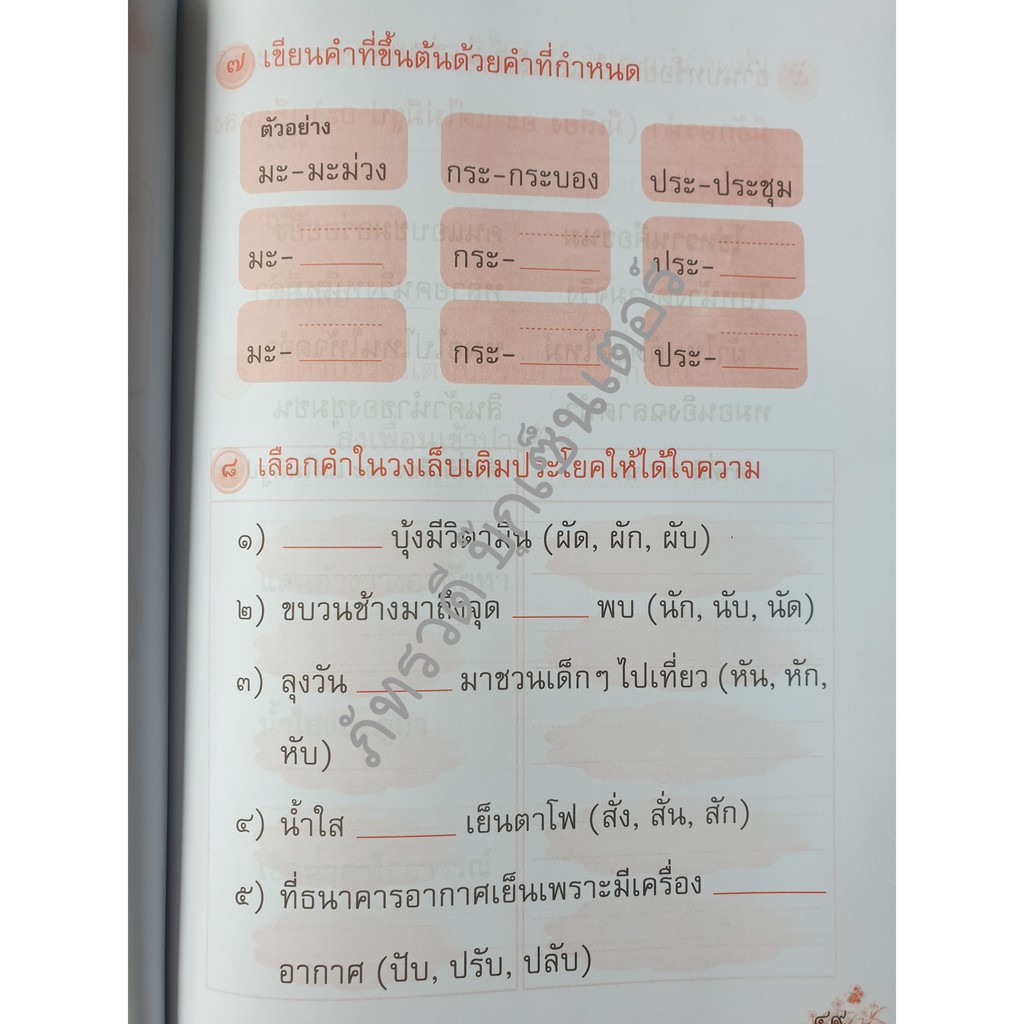 ๗ เขียนคำที่ขึ้นต้นด้วยคำที่กำหนด
ตัวอย่าง
มะ-มะม่วง กระ-กระบอง ประ-ประชุม
มะ- กระ- ประ-
มะ- กระ- ประ-
๘ เลือกคำในวงเล็บเติมประโยคให้ได้ใจความ
๑) บุ้งมีวิตามิน (ผัด, ผัก, ผับ)
๒) ขบวนช้างมาถึงจุด พบ (นัก, นับ, นัด)
๓) ลุงวัน มาชวนเด็กๆ ไปเที่ยว (หัน, หัก,
หับ)
๔) น้ำใส เย็นตาโฟ (สั่ง, สั่น, สัก)
๕) ที่ธนาคารอากาศเย็นเพราะมีเครื่อง
อากาศ (ปับ, ปรับ, ปลับ)
ภัทรวดี บุ๊กเซ็นเตอร์